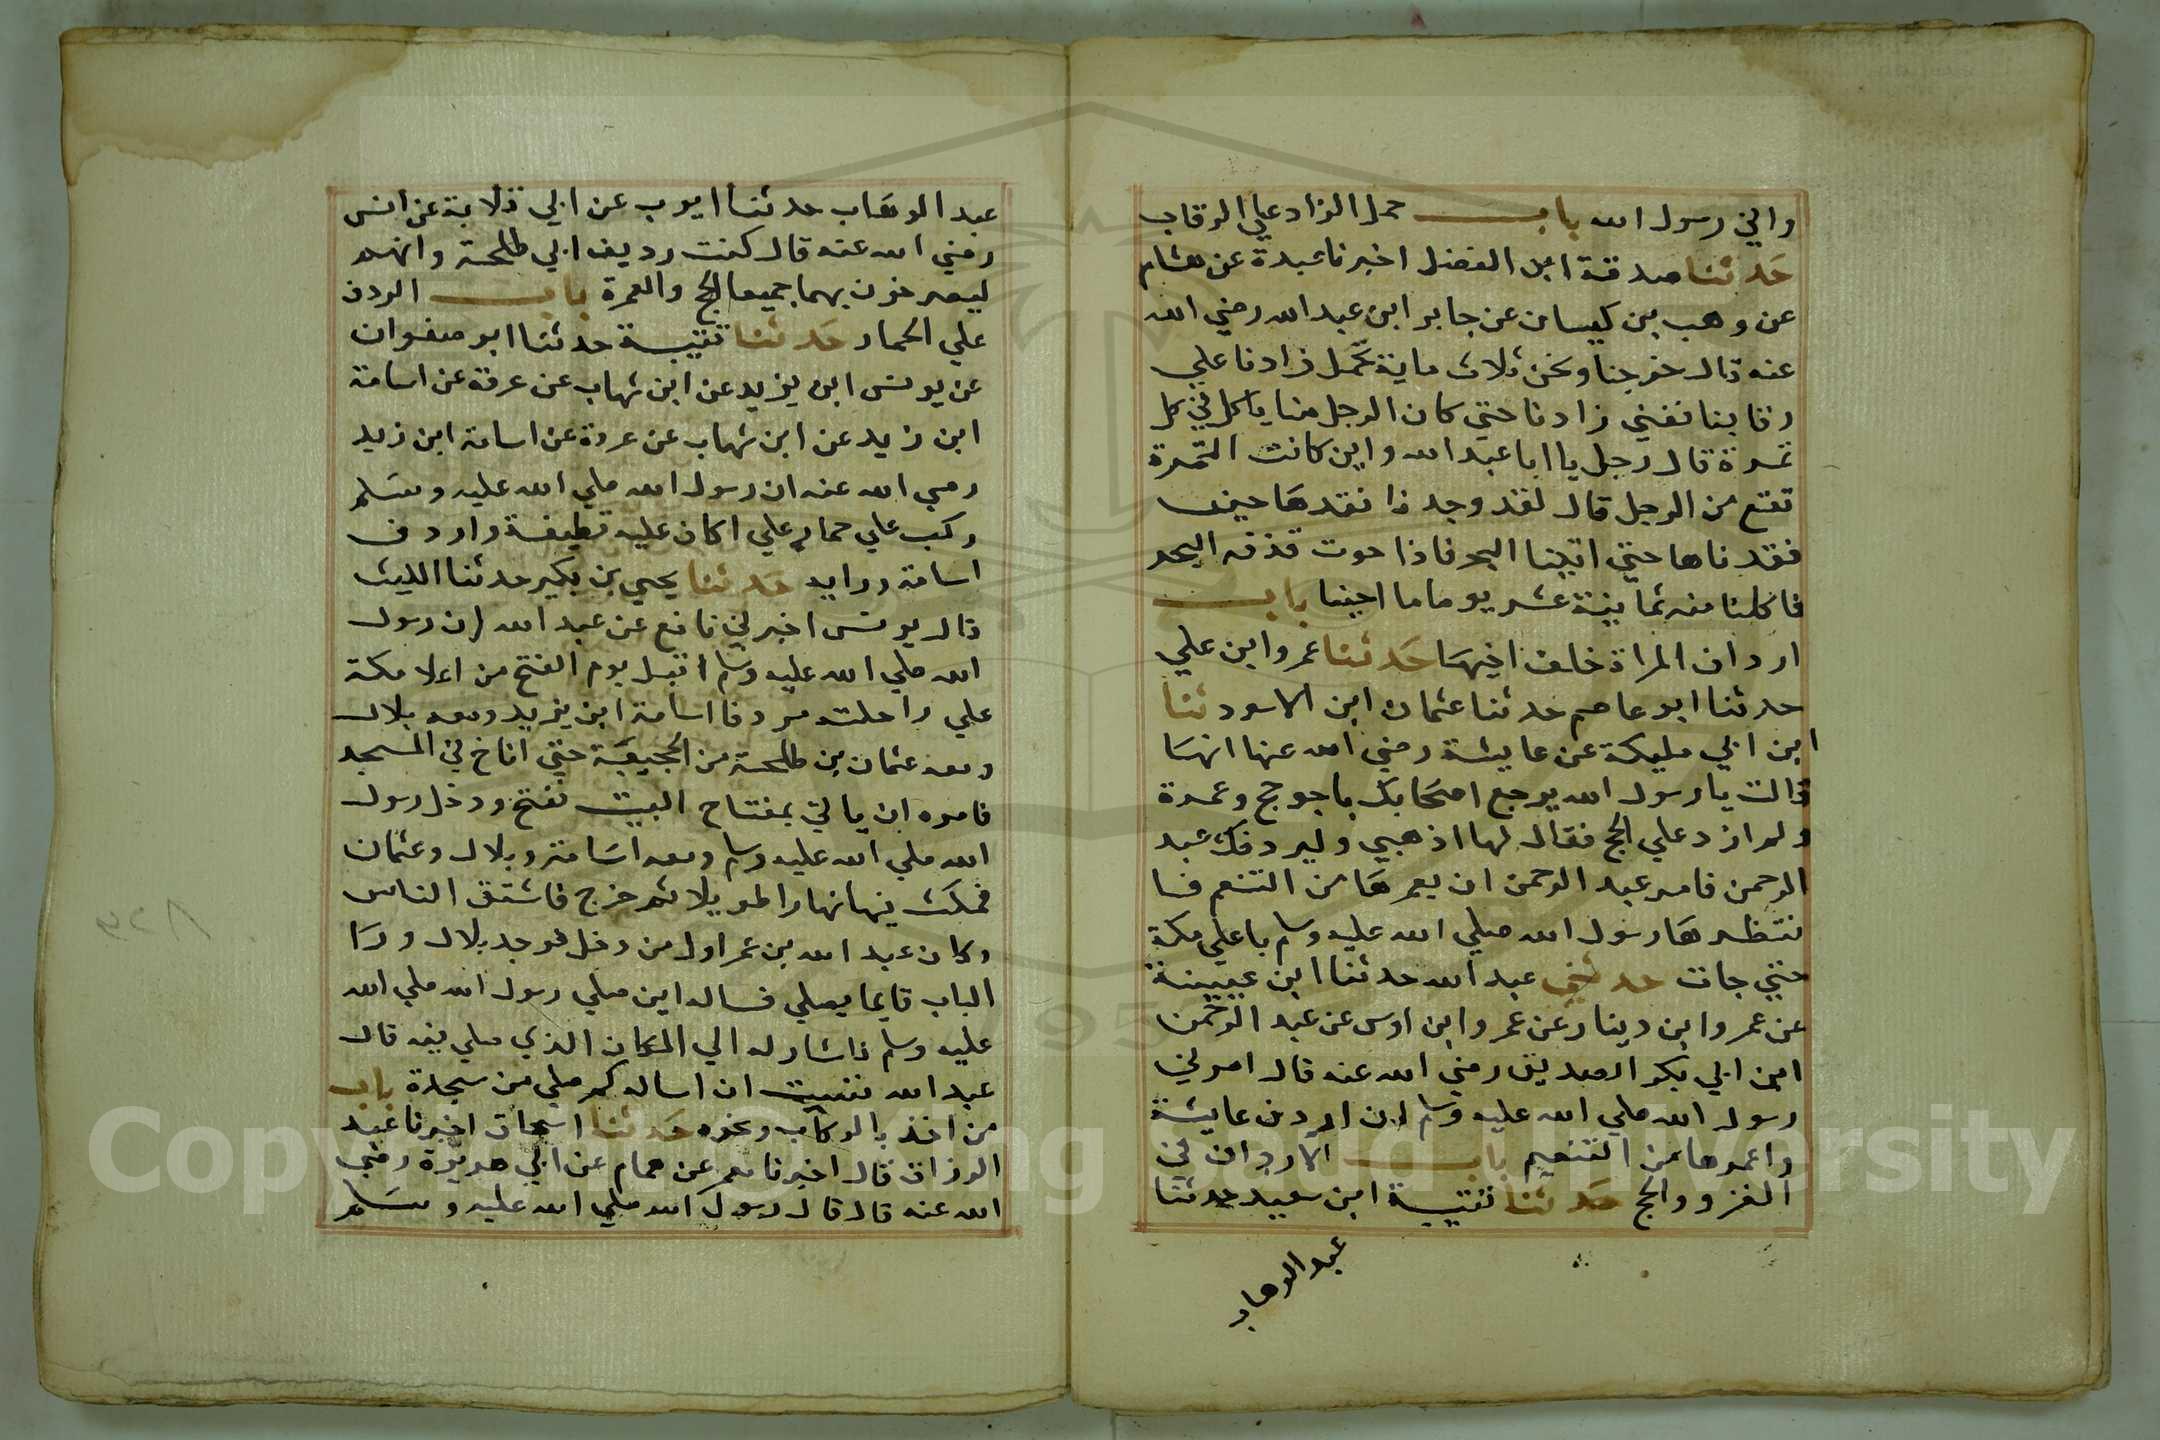 واني رسول الله باب حمل الزاد علي الرقاب
حدثنا صدقة ابن الفضل اخبرنا عبدة عن هشام
عن وهب بن كيسان عن جابر ابن عبد الله رضي الله
عنه قال خرجنا ونحن ثلاث ماية نحمل زادنا علي
رقابنا نفني زادنا حتي كان الرجل منا ياكل في كل
تمرة قال رجل يا ابا عبد الله واين كانت التمرة
تقتع من الرجل قال لقد وجدنا فقدها حين
فقدناها حتي اتينا البحر فاذا حوت قذفه البحر
فاكلنا منه ثمانية عشر يوما ما احببنا باب
اردان المراة خلف اخيها حدثنا عمرو ابن علي
حدثنا ابو عاصم حدثنا عثمان ابن الاسود ثنا
ابن ابي مليكة عن عايشة رضي الله عنها انها
قالت يا رسول الله يرجع اصحابك باجر حج وعمرة
ولم ازد علي الحج فقال لها اذهبي وليردفك عبد
الرحمن فامر عبد الرحمن ان يعمرها من التنعم فا
نتظرها رسول الله صلي الله عليه وسلم باعلي مكة
حتي جات حدثني عبد الله حدثنا ابن عيينة
عن عمرو ابن دينار عن عمرو ابن اوس عن عبد الرحمن
ابن ابي بكر الصديق رضي الله عنه قال امرني
رسول الله صلي الله عليه وسلم ان اردن عايشة
واعمرها من التنعيم باب الاردان في
الغزو والحج حدثنا قتيبة ابن سعيد حدثنا
عبد الوهاب
عبد الوهاب حدثنا ايوب عن ابي قلابة عن انس
رضي الله عنه قال كنت رديف ابي طلحة وانهم
ليصرخون بهما جميعا الحج والعمرة باب الردف
علي الحمار حدثنا قتيبة حدثنا ابو صفوان
عن يونس ابن يزيد عن ابن شهاب عن عرفة عن اسامة
ابن زيد عن ابن شهاب عن عروة عن اسامة ابن زيد
رضي الله عنه ان رسول الله صلي الله عليه وسلم
ركب علي حمار علي اكان عليه قطيفة واردف
اسامة وراه حدثنا يحيي بن بكير حدثنا الليث
قال يونس اخبرني نافع عن عبد الله ان رسول
الله صلي الله عليه وسلم اقبل يوم الفتح من اعلا مكة
علي راحلته مردفا اسامة ابن يزيد ومعه بلال
ومعه عثمان بن طلحة من الحجبة حتي اناخ في المسجد
فامره ان ياتي بمفتاح البيت ففتح ودخل رسول
الله صلي الله عليه وسلم ومعه اسامة وبلال وعثمان
فمكث فيها نهارا طويلا ثم خرج فاستق الناس
وكان عبد الله بن عمر اول من دخل فوجد بلال ورا
الباب قايما يصلي فساله اين صلي رسول الله صلي الله
عليه وسلم فاشار له الي المكان الذي صلي فيه قال
عبد الله فنسيت ان اساله كم صلي من سجدة باب
من اخذ بالركاب ونحوه حدثنا اسحاق اخبرنا عبد
الرزاق قال اخبرنا معمر عن همام عن ابي هريرة رضي
الله عنه قال قال رسول الله صلي الله عليه وسلم
Copyright © King Saud University